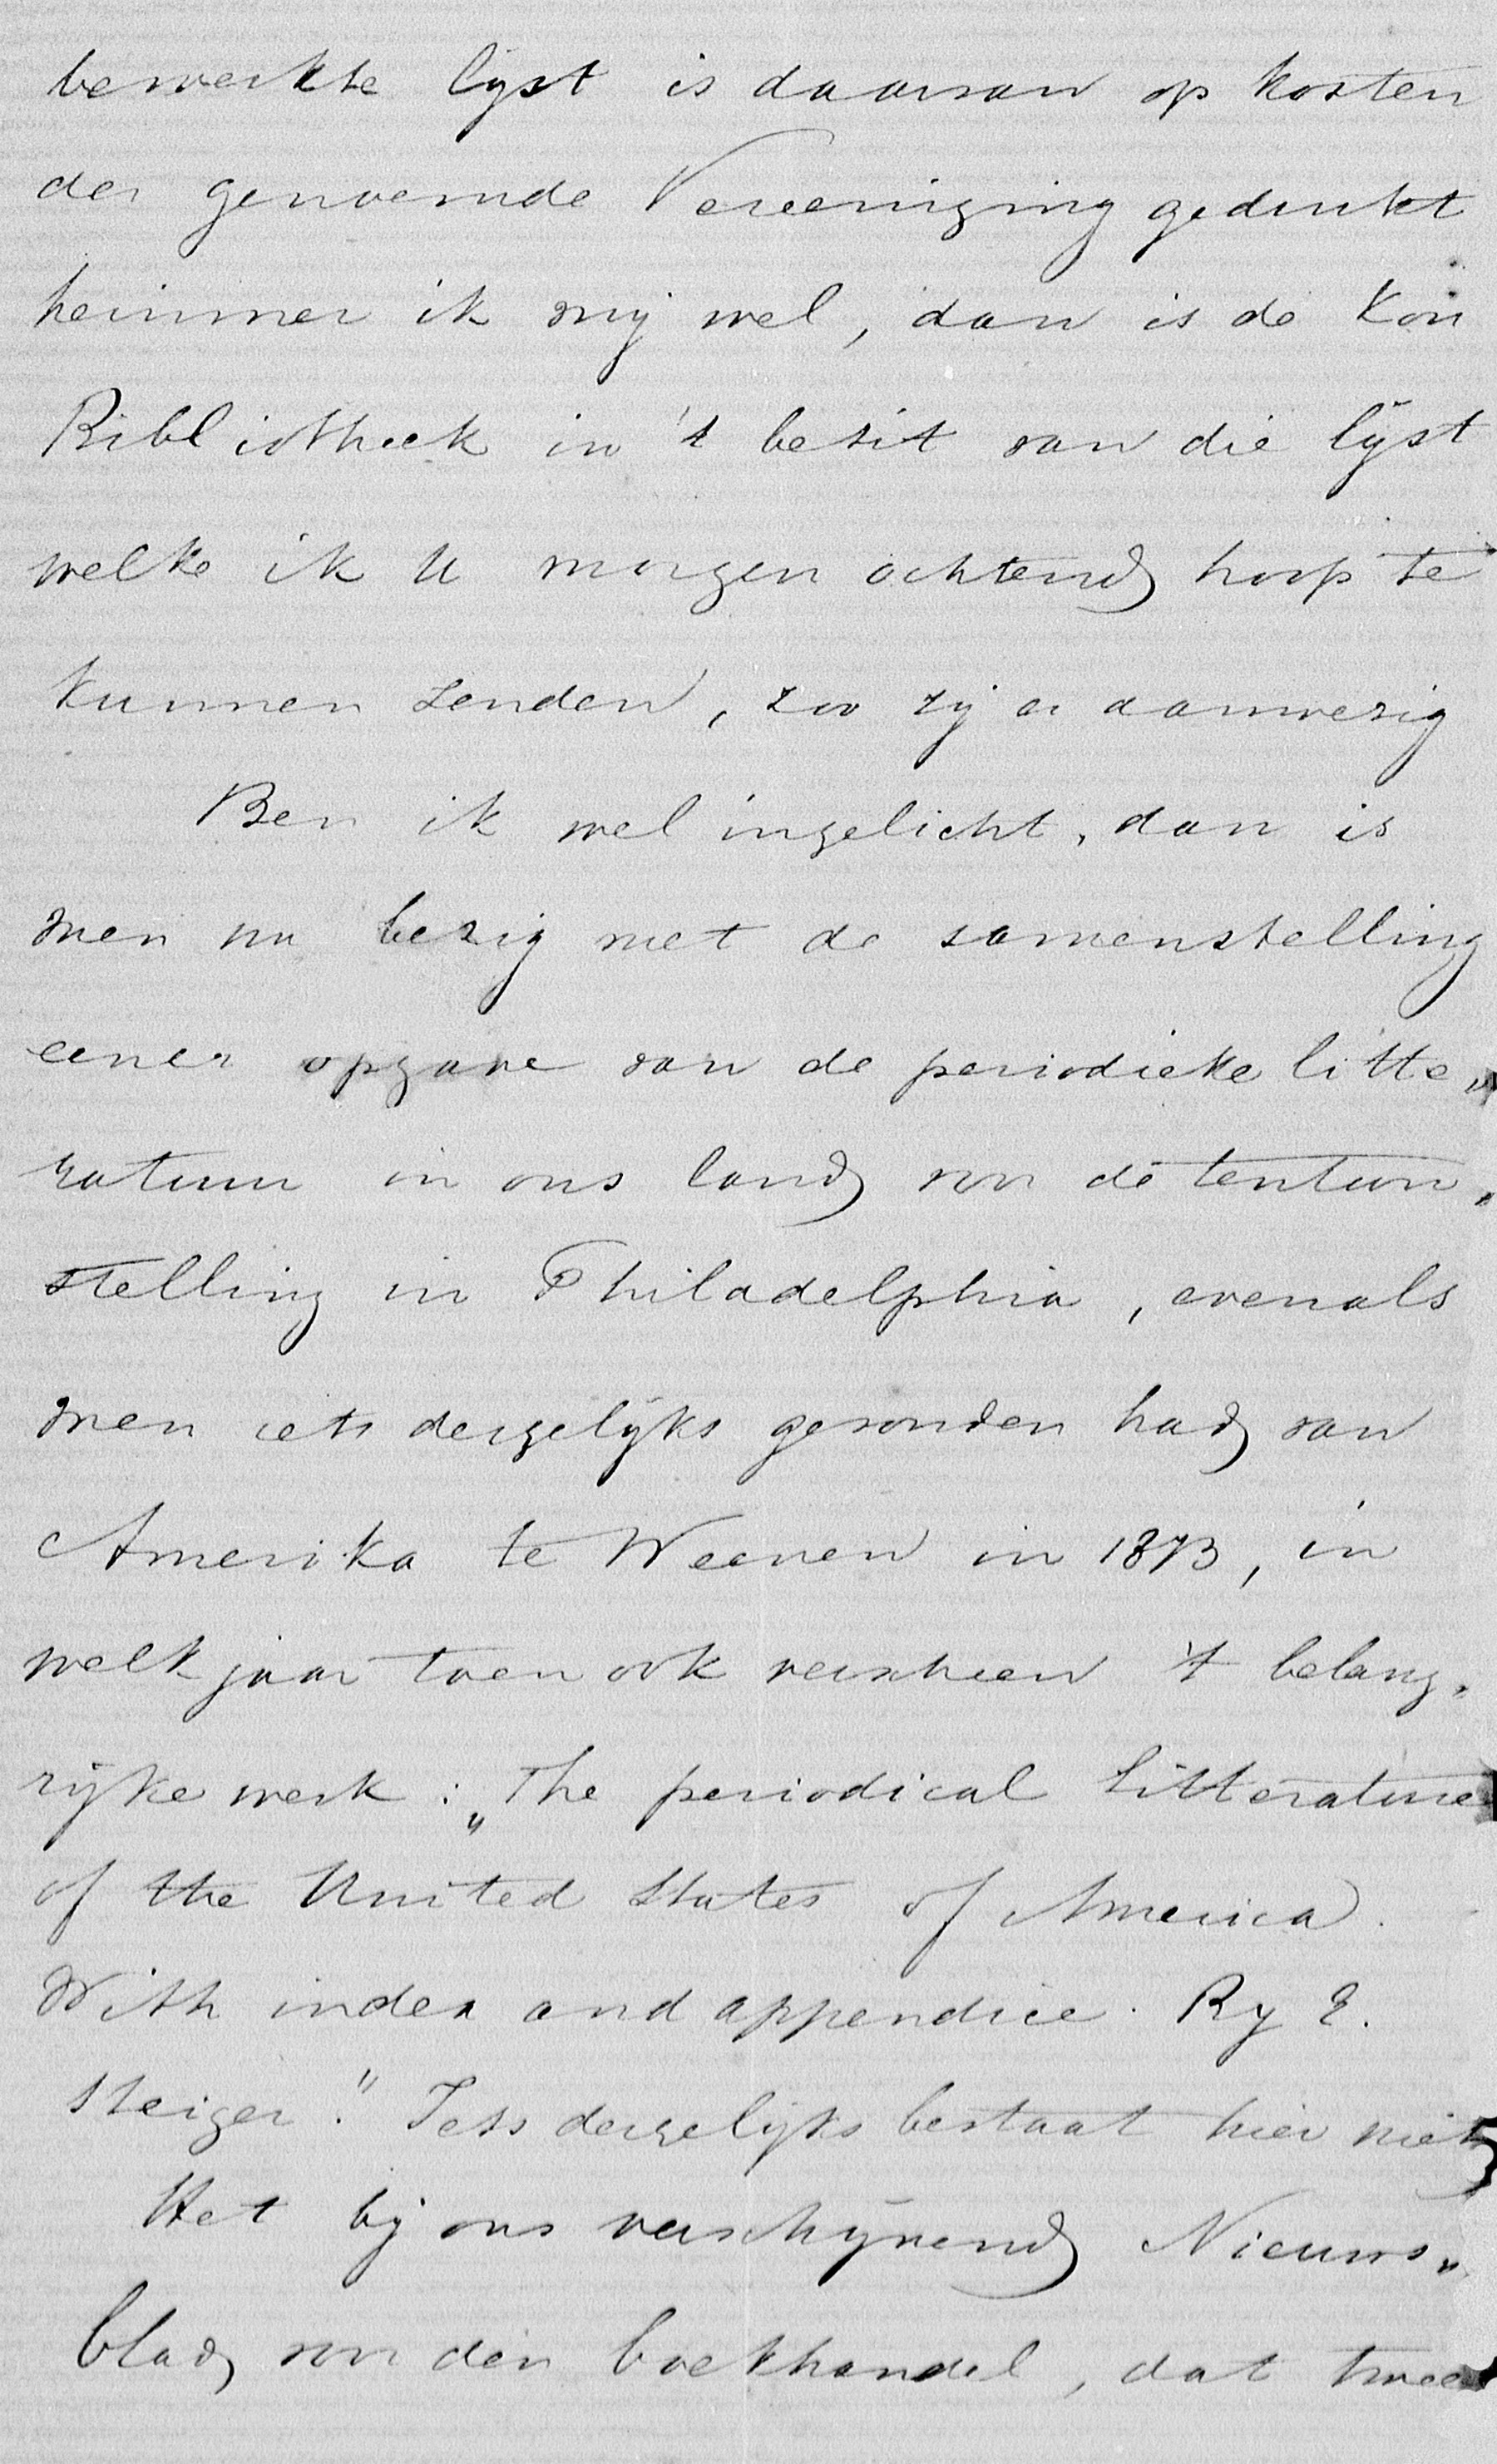 bewerkte lijst is daarvan op kosten
der genoemde Vereeniging gedrukt
herinner ik mij wel, dan is de Kon
Bibliotheek in 't bezit van die lijst
welke ik U morgen ochtend hoop te
kunnen zenden, zoo zij er aanwezig
Ben ik wel ingelicht, dan is
men nu bezig met de samenstelling
eener opgave van de periodieke litte„
ratuur in ons land voor de tentoon„
stelling in Philadelphia, evenals
men iets dergelijks gezonden had van
Amerika te Weenen in 1873, in
welk jaar toen ook verscheen 't belang„
rijke werk: „The periodical litterature
of the United States of America.
With index and appendice. By E.
Steiger." Iets dergelijks bestaat hier niet
Het bij ons verschijnend Nieuws„
blad voor den boekhandel, dat twee